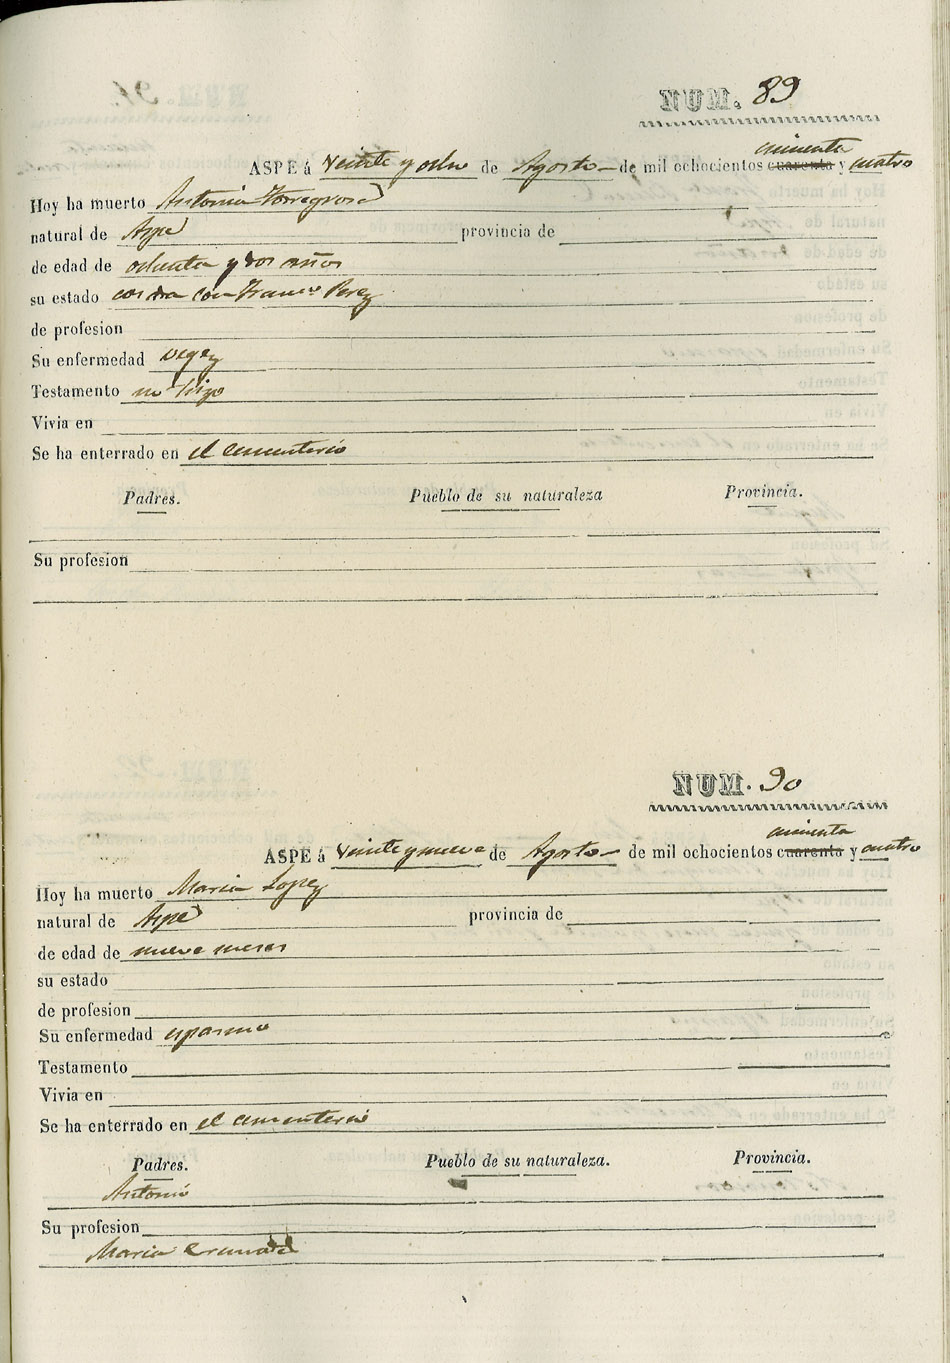 NUM. 89
ASPE á veinte y ocho de Agosto de mil ochocientos cuarenta cincuenta y cuatro
Hoy ha muerto Antonia Torregrosa
natural de Aspe provincia de
de edad de ochenta y dos años
su estado casada con Franco Perez
de profesion
Su enfermedad vegez
Testamento no hizo
Vivia en
Se ha enterrado en el cementerio
Padres. Pueblo de su naturaleza Provincia.
Su profesion
NUM. 90
ASPE á veinte y nueve de Agosto de mil ochocientos cuarenta cincuenta y cuatro
Hoy ha muerto Maria Lopez
natural de Aspe provincia de
de edad de nueve meses
su estado
de profesion
Su enfermedad espasmo
Testamento
Vivia en
Se ha enterrado en el cementerio
Padres. Pueblo de su naturaleza. Provincia.
Antonio
Su profesion
Maria